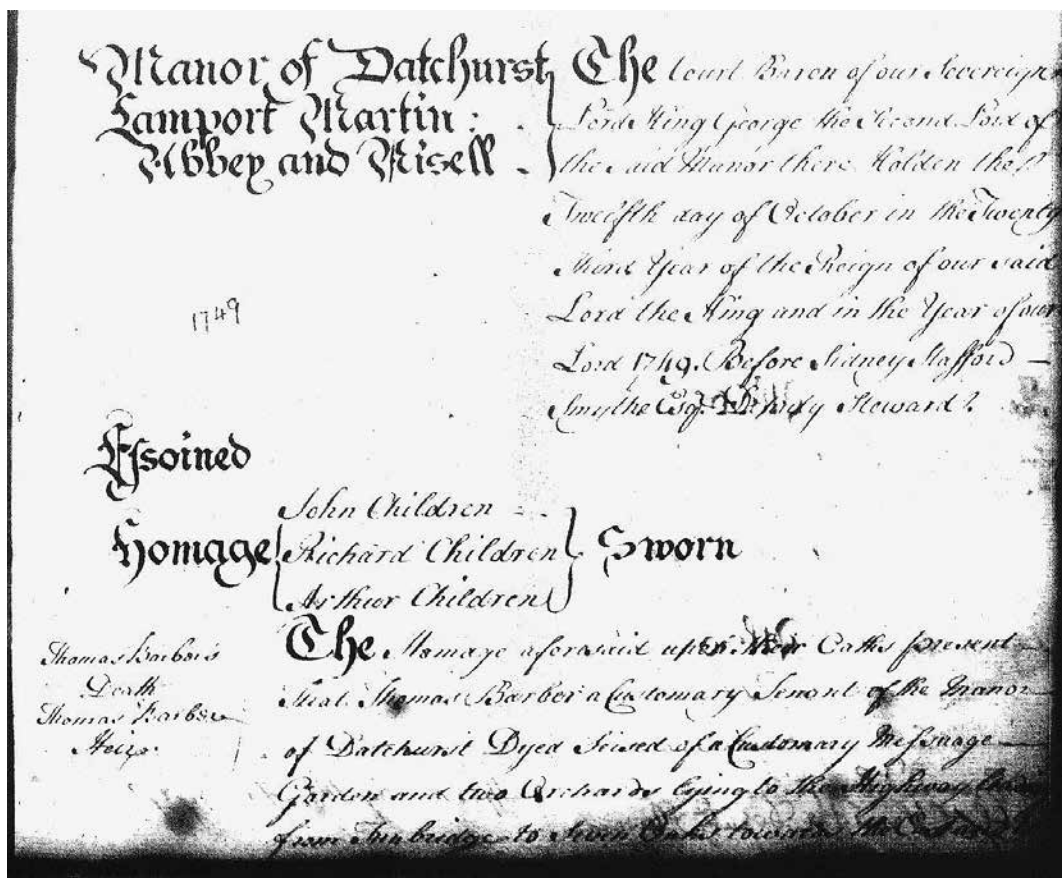 Manor of Datchurst
Lamport Martin:
Abbey and Nisell
The Court Baron of our Sovereign
Lord King George the Second Lord of
the said Manor there Holden the
Twelfth day of October in the Twenty
third Year of the Reign of our said
Lord the King and in the Year of our
Lord 1749. Before Sidney Stafford
Smythe Esq. Deputy Steward
1749
Essoined
Homage
John Children
Richard Children
Arthur Children
Sworn
Thomas Barber's
Death
Thomas Barber
Heir.
The Homage aforesaid upon their Oaths present
that Thomas Barber a Customary Tenant of the Manor
of Datchurst Dyed Seised of a Customary Messuage
Garden and two Orchards lying to the Highway
from Tunbridge to Seven Oaks towards the